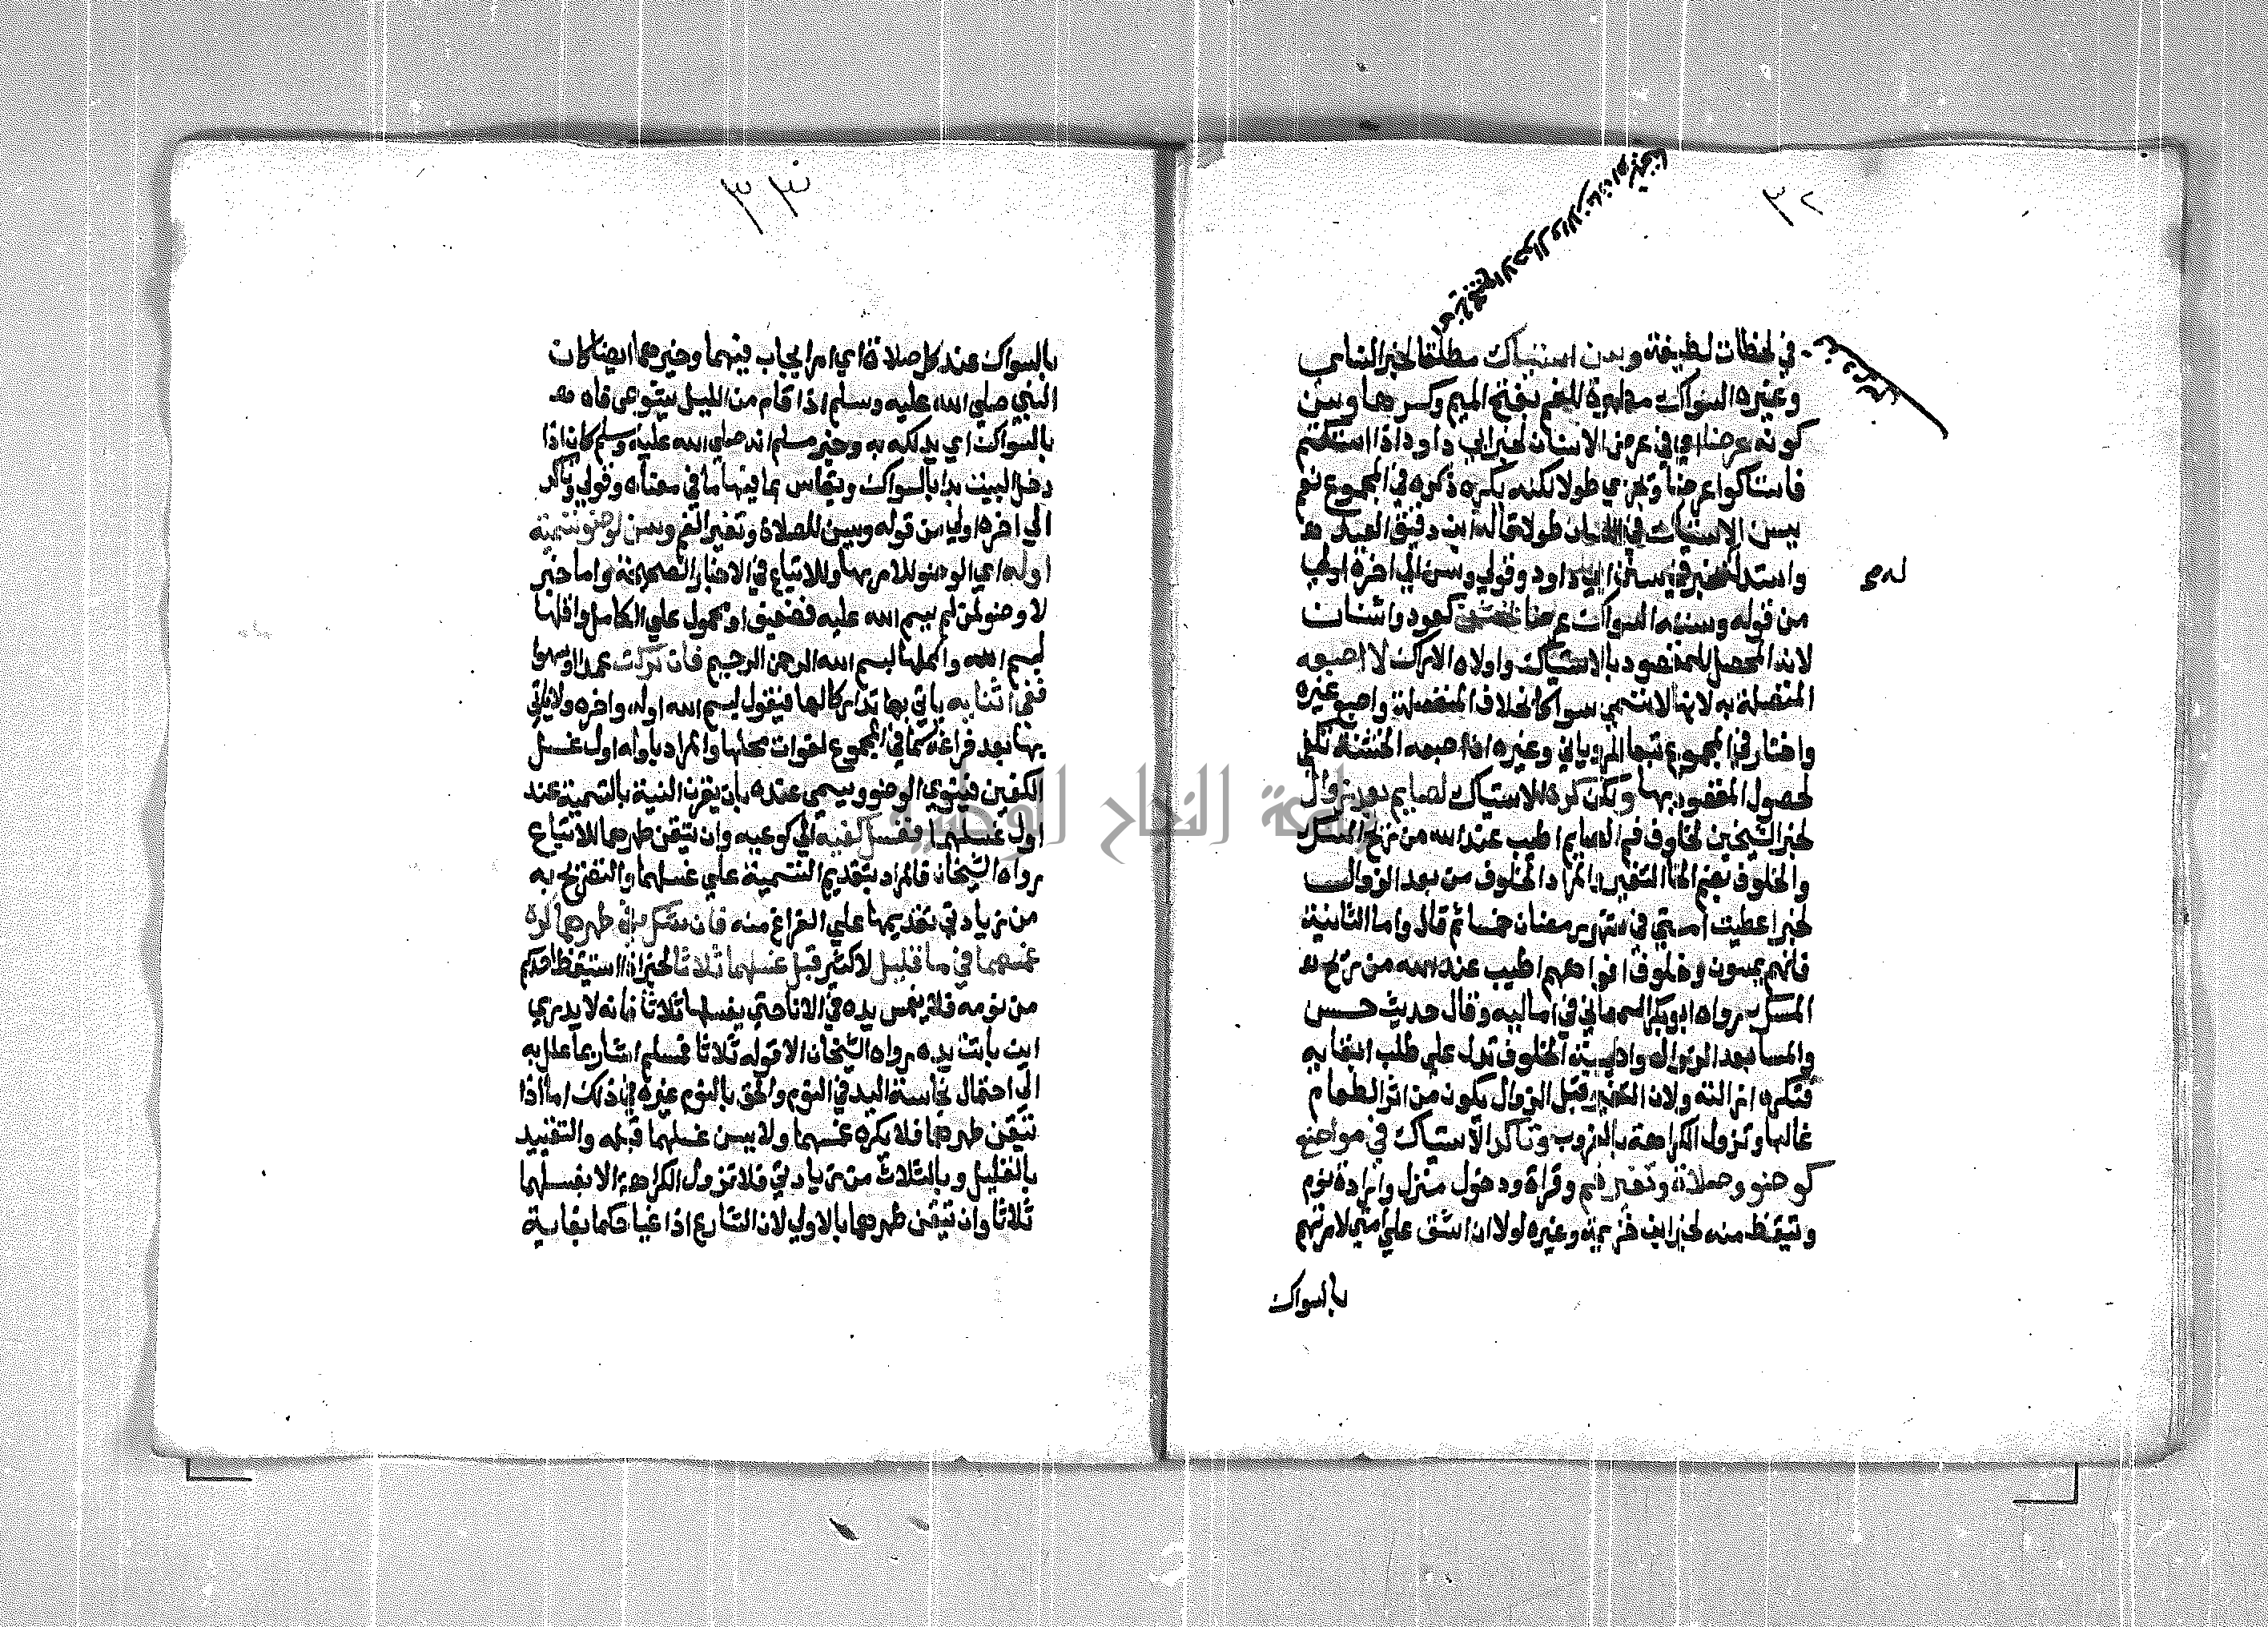 ٣٢
في لحظات لطيفة وسن استياك مطلقا لخبر النساى
وغيره السواك مطهرة للفم بفتح الميم وكسرها وسن
كونه عرضا اي في عرض الاسنان لخبر ابي داود اذا استكتم
فاستاكوا عرضا ويجزي طولا لكنه يكره ذكره في المجموع نعم
يسن الاستياك في اللسان طولا قاله ابن دقيق العيد
واستدل بخبر في سنن ابي داود وقولي وسن الي اخره اولي
من قوله وسننه السواك عرضا بخشن كعود واشنان
لانه المحصل للمقصود بالاستياك واولاه الاراك لا اصبعه
المتصلة به لانها لا تسمي سواكا بخلاف المنفصلة واصبع غيره
واختار في المجموع تبعا للروياني وغيره ان اصبعه الخشنة تكفي
لحصول المقصود بها ولكن كره الاستياك لصايم بعد زوال
لخبر الشيخين لخلوف فم الصايم اطيب عند الله من ريح المسك
والخلوف بضم الخا التغير والمراد الخلوف من بعد الزوال
لخبر اعطيت امتي في شهر رمضان خمسا ثم قال واما الثانية
فانهم يمسون وخلوف افواههم اطيب عند الله من ريح
المسك رواه ابو بكر السمعاني في اماليه وقال حديث حسن
والمسا بعد الزوال واطيبية الخلوف تدل علي طلب ابقايه
فتكره ازالته ولان التغير قبل الزوال يكون من اثر الطعام
غالبا وتزول الكراهة بالغروب وتاكد الاستياك في مواضع
كوضو وصلاة وتغير فم وقراة ودخول منزل وارادة نوم
وتيقظ منه لخبر ابن خزيمة وغيره لولا ان اشق علي امتي لامرتهم
بالسواك
٣٣
بالسواك عند كل صلاة اي امر ايجاب فيهما وخبرهما ايضا كان
النبي صلي الله عليه وسلم اذا قام من الليل يشوص فاه
بالسواك اي يدلكه به وخبر مسلم انه صلي الله عليه وسلم كان اذا
دخل البيت بدا بالسواك ويقاس بما فيها ما في معناه وقولي وتاكد
الي اخره اولي من قوله وسن للصلاة وتغير الفم وسن لوضو تسمية
اوله اي الوضو للامر بها وللاتباع في الاخبار الصحيحة واما خبر
لا وضو لمن لم يسم الله عليه فضعيف او محمول علي الكامل واقلها
بسم الله واكملها بسم الله الرحمن الرحيم فان تركت عمدا او سهوا
ففي اثنايه ياتي بها تداركا لها فيقول بسم الله اوله واخره ولا ياتي
بها بعد فراغه كما في المجموع لفوات محلها والمراد باوله اول غسل
الكفين فينوي الوضو ويسمي عنده بان يقرن النية بالتسمية عند
اول غسلهما فغسل كفيه الي كوعيه وان تيقن طهرهما للاتباع
رواه الشيخان فالمراد بتقديم التسمية علي غسلهما والتصريح به
من زيادتي تقديمها علي الفراغ منه فان شك في طهرهما كره
غمسهما في ما قليل لا كثير قبل غسلهما ثلاثا لخبر اذا استيقظ احدكم
من نومه فلا يغمس يده في الانا حتي يغسلها ثلاثا فانه لا يدري
اين باتت يده رواه الشيخان الا قوله ثلاثا فمسلم اشار بما علل به
الي احتمال نجاسة اليد في النوم والحق بالنوم غيره في ذلك اما اذا
تيقن طهرهما فلا يكره غمسهما ولا يسن غسلهما قبله والتقييد
بالقليل وبالثلاث من زيادتي فلا تزول الكراهة الا بغسلهما
ثلاثا وان تيقن طهرهما بالاولي لان الشارع اذا غيا حكما بغاية
جامعة النجاح الوطنية